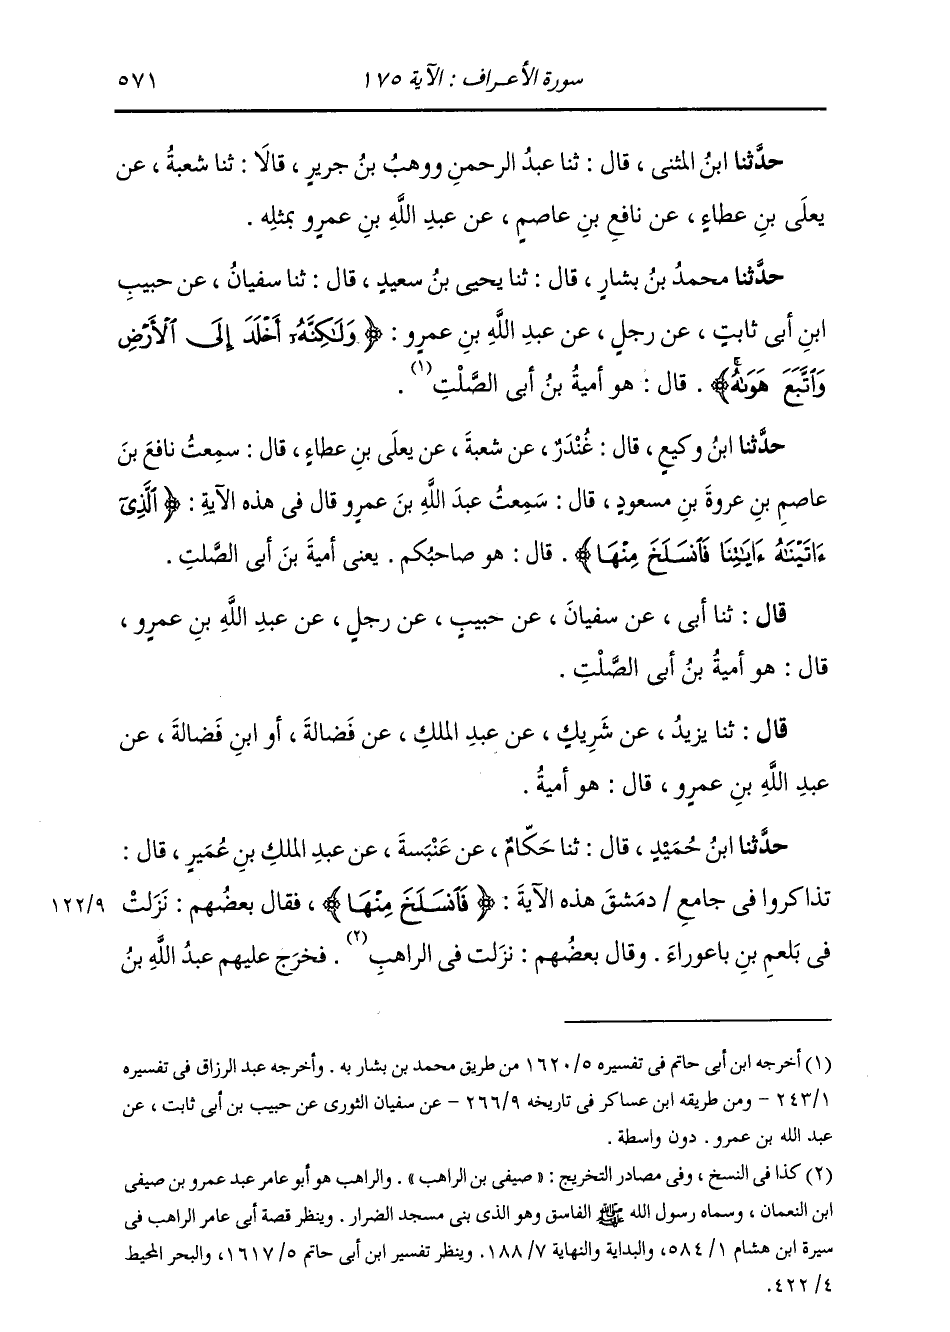 سورة الأعراف : الآية ١٧٥
٥٧١
حدَّثنا ابنُ المثنى ، قال : ثنا عبدُ الرحمنِ ووهبُ بنُ جريرٍ ، قالَا : ثنا شعبةُ ، عن
يعلَى بنِ عطاءٍ ، عن نافعِ بنِ عاصمٍ ، عن عبدِ اللَّهِ بنِ عمرٍو بمثلِه .
حدَّثنا محمدُ بنُ بشارٍ ، قال : ثنا يحيى بنُ سعيدٍ ، قال : ثنا سفيانُ ، عن حبيبِ
ابنِ أبى ثابتٍ ، عن رجلٍ ، عن عبدِ اللَّهِ بنِ عمرٍو : ﴿ وَلَٰكِنَّهُۥٓ أَخْلَدَ إِلَى ٱلْأَرْضِ
وَٱتَّبَعَ هَوَىٰهُۚ ﴾ . قال : هو أميةُ بنُ أبى الصَّلْتِ (١) .
حدَّثنا ابنُ وكيعٍ ، قال : غُنْدَرٌ ، عن شعبةَ ، عن يعلَى بنِ عطاءٍ ، قال : سمِعتُ نافعَ بنَ
عاصمِ بنِ عروةَ بنِ مسعودٍ ، قال : سَمِعتُ عبدَ اللَّهِ بنَ عمرٍو قال فى هذه الآيةِ : ﴿ ٱلَّذِىٓ
ءَاتَيْنَٰهُ ءَايَٰتِنَا فَٱنسَلَخَ مِنْهَا ﴾ . قال : هو صاحبُكم . يعنى أميةَ بنَ أبى الصَّلتِ .
قال : ثنا أبى ، عن سفيانَ ، عن حبيبٍ ، عن رجلٍ ، عن عبدِ اللَّهِ بنِ عمرٍو ،
قال : هو أميةُ بنُ أبى الصَّلْتِ .
قال : ثنا يزيدُ ، عن شَرِيكٍ ، عن عبدِ الملكِ ، عن فَضالةَ ، أو ابنِ فَضالةَ ، عن
عبدِ اللَّهِ بنِ عمرٍو ، قال : هو أميةُ .
حدَّثنا ابنُ حُمَيْدٍ ، قال : ثنا حَكّامٌ ، عن عَنْبَسةَ ، عن عبدِ الملكِ بنِ عُمَيرٍ ، قال :
تذاكروا فى جامعِ / دمَشقَ هذه الآيةَ : ﴿ فَٱنسَلَخَ مِنْهَا ﴾ ، فقال بعضُهم : نَزَلتْ ١٢٢/٩
فى بَلعمِ بنِ باعوراءَ . وقال بعضُهم : نزَلت فى الراهبِ (٢) . فخرَج عليهم عبدُ اللَّهِ بنُ
(١) أخرجه ابن أبى حاتم فى تفسيره ١٦٢٠/٥ من طريق محمد بن بشار به . وأخرجه عبد الرزاق فى تفسيره
٢٤٣/١ - ومن طريقه ابن عساكر فى تاريخه ٢٦٦/٩ - عن سفيان الثورى عن حبيب بن أبى ثابت ، عن
عبد الله بن عمرو . دون واسطة .
(٢) كذا فى النسخ ، وفى مصادر التخريج : « صيفى بن الراهب » . والراهب هو أبو عامر عبد عمرو بن صيفى
ابن النعمان ، وسماه رسول الله ﷺ الفاسق وهو الذى بنى مسجد الضرار . وينظر قصة أبى عامر الراهب فى
سيرة ابن هشام ٥٨٤/١، والبداية والنهاية ١٨٨/٧. وينظر تفسير ابن أبى حاتم ١٦١٧/٥، والبحر المحيط
٤٢٢/٤.